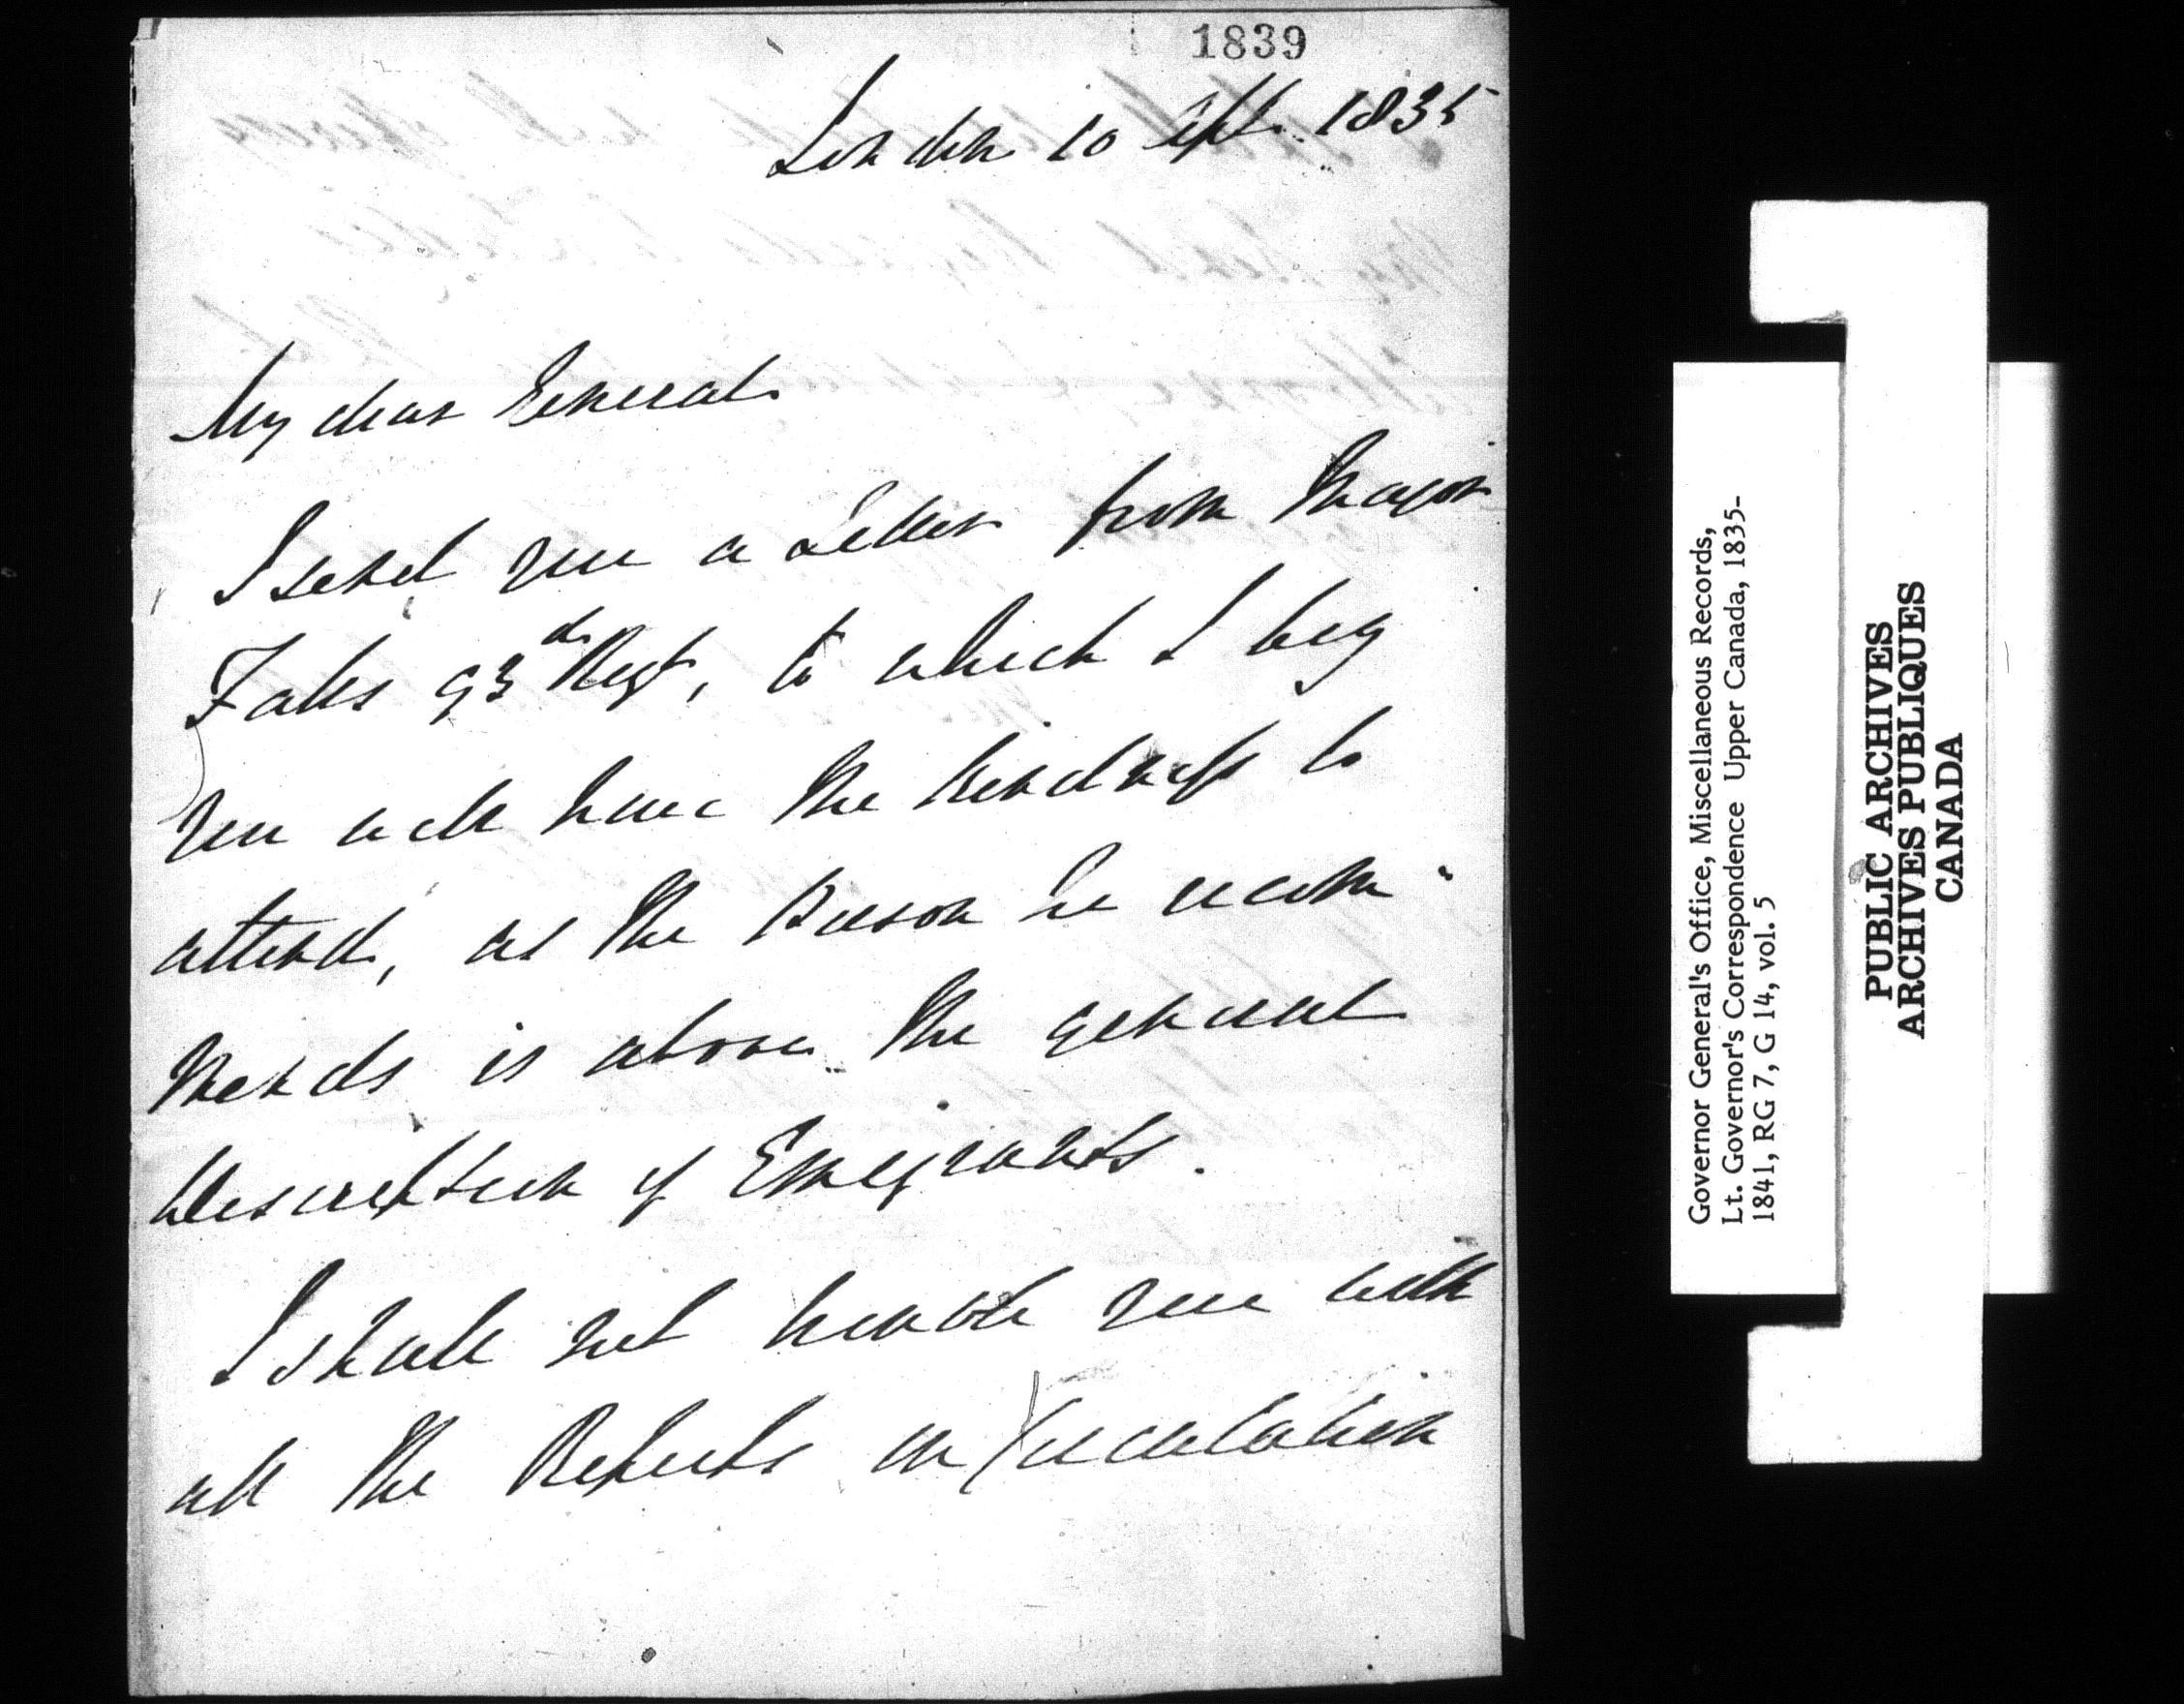 1839
London 10 Sept. 1835
My dear General
I send you a Letter from Major
Falls 93d Regt, to which I beg
you will have the kindness to
attend, as the Person he recom-
mends is above the general
Description of Emigrants.
I shall not trouble you with
all the Reports in Circulation
Governor General's Office, Miscellaneous Records,
Lt. Governor's Correspondence Upper Canada, 1835-
1841, RG 7, G 14, vol. 5
PUBLIC ARCHIVES
ARCHIVES PUBLIQUES
CANADA